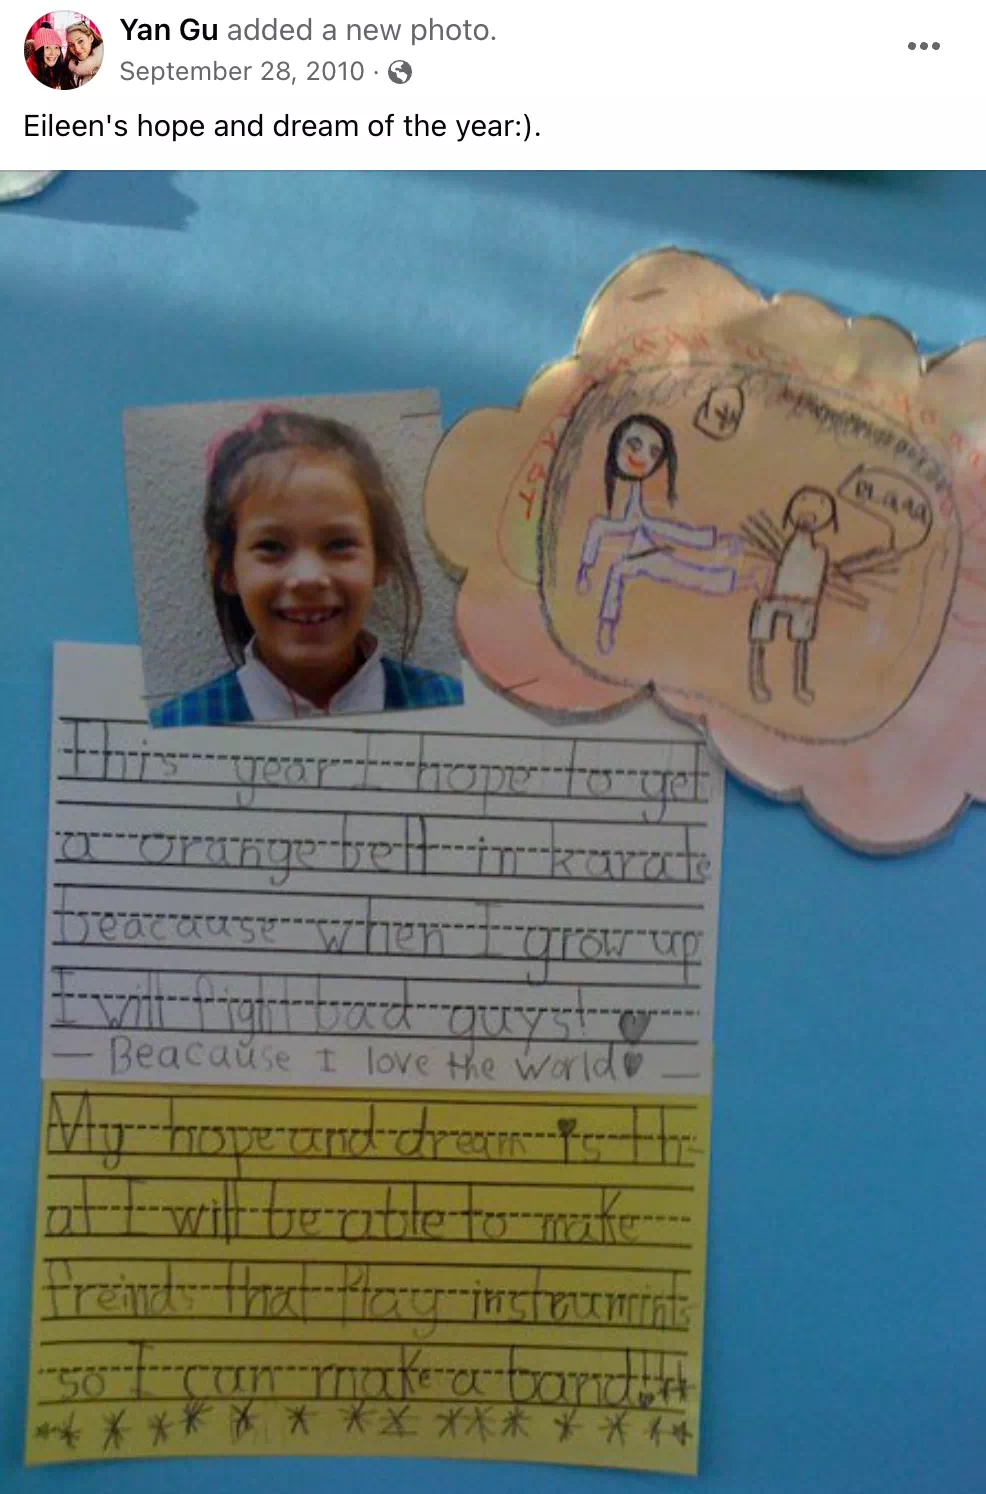 Yan Gu added a new photo.
September 28, 2010 ·
Eileen's hope and dream of the year:).
This year I hope to get
a orange belt in karate
beacause when I grow up
I will fight bad guys! ♥
— Beacause I love the world♥ —
My hope and dream is th-
at I will be able to make
freinds that play instrumints
so I can make a band!!